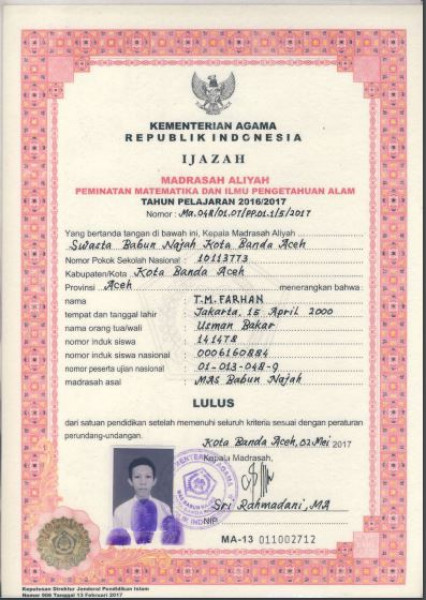 KEMENTERIAN AGAMA
REPUBLIK INDONESIA
IJAZAH
MADRASAH ALIYAH
PEMINATAN MATEMATIKA DAN ILMU PENGETAHUAN ALAM
TAHUN PELAJARAN 2016/2017
Nomor : Ma.048/01.07/PP.01.1/5/2017
Yang bertanda tangan di bawah ini, Kepala Madrasah Aliyah
Swasta Babun Najah Kota Banda Aceh
Nomor Pokok Sekolah Nasional : 10113773
Kabupaten/Kota : Kota Banda Aceh
Provinsi Aceh menerangkan bahwa :
nama : T.M. FARHAN
tempat dan tanggal lahir : Jakarta, 15 April 2000
nama orang tua/wali : Usman Bakar
nomor induk siswa : 141478
nomor induk siswa nasional : 0006160884
nomor peserta ujian nasional : 01-013-048-9
madrasah asal : MAS Babun Najah
LULUS
dari satuan pendidikan setelah memenuhi seluruh kriteria sesuai dengan peraturan
perundang-undangan.
Kota Banda Aceh, 02 Mei 2017
Kepala Madrasah,
Sri Rahmadani, MA
NIP.
MA-13 011002712
Keputusan Direktur Jenderal Pendidikan Islam
Nomor 506 Tanggal 13 Februari 2017